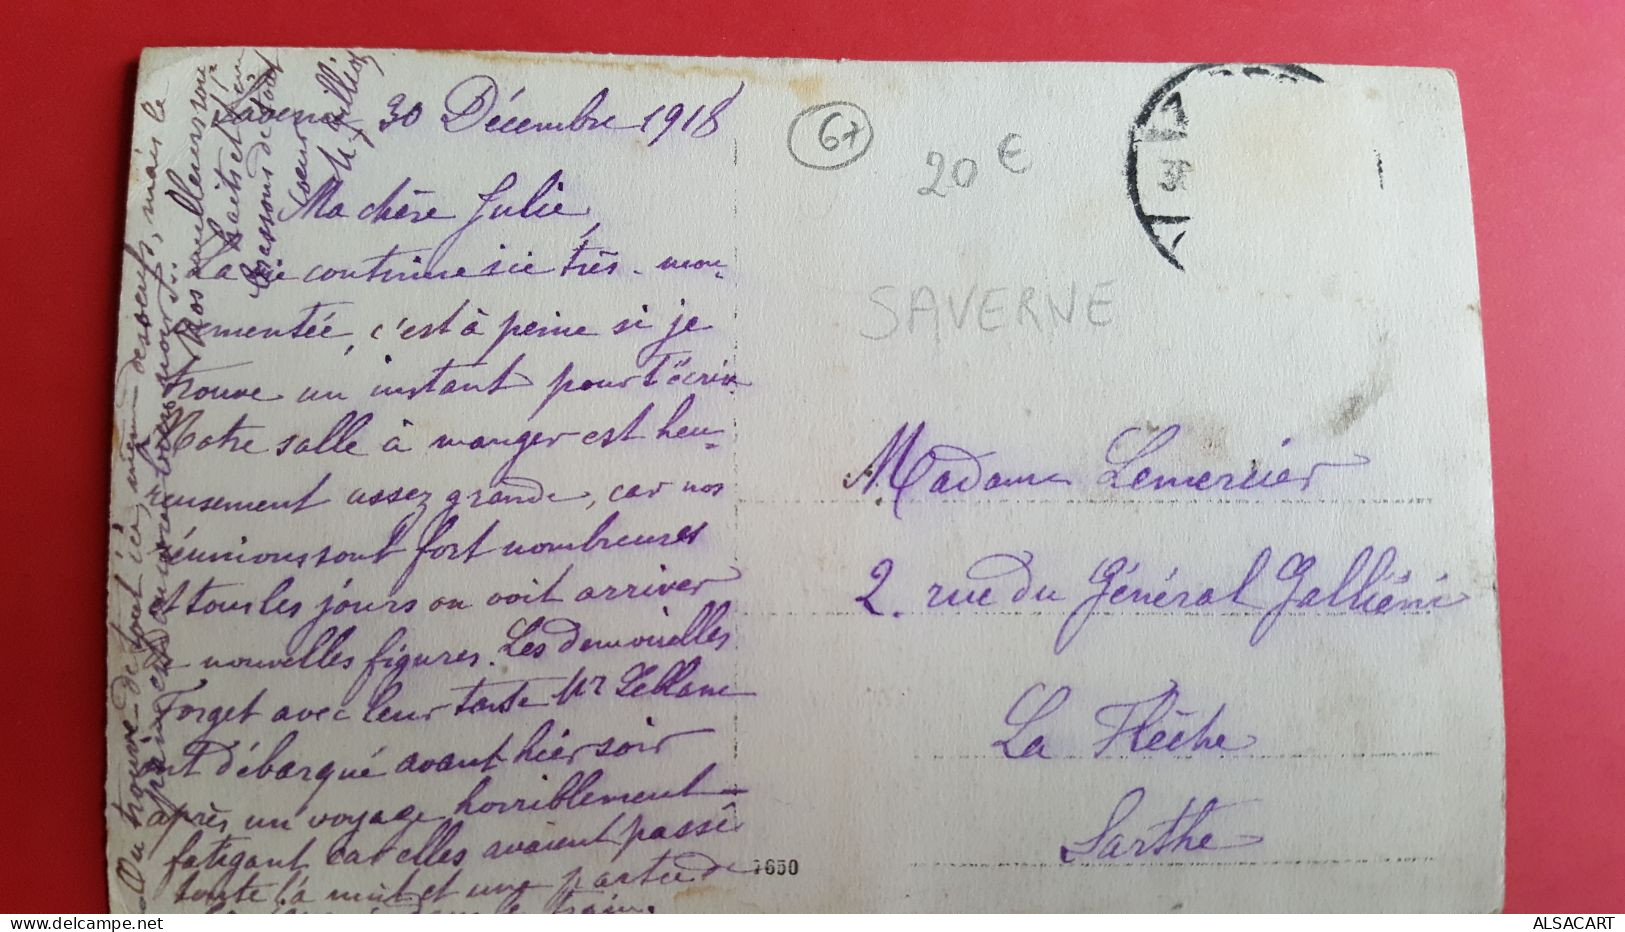 Saverne 30 Décembre 1918
Ma chère Julie,
La vie continue ici très mou-
vementée, c'est à peine si je
trouve un instant pour t'écrire
Notre salle à manger est heu-
reusement assez grande, car nos
réunions sont fort nombreuses
et tous les jours on voit arriver
de nouvelles figures. Les demoiselles
Forget avec leur tante Mr Leblanc
ont débarqué avant hier soir
après un voyage horriblement
fatigant car elles avaient passé
toute la nuit et une partie de
dans le train.
On trouve de tout ici, même des oeufs, mais le
Nos meilleurs sou-
haits et
baisers de tous
67
20 €
SAVERNE
Madame Lemercier
2. rue du Général Galliéni
La Flèche
Sarthe
7650
ALSACART